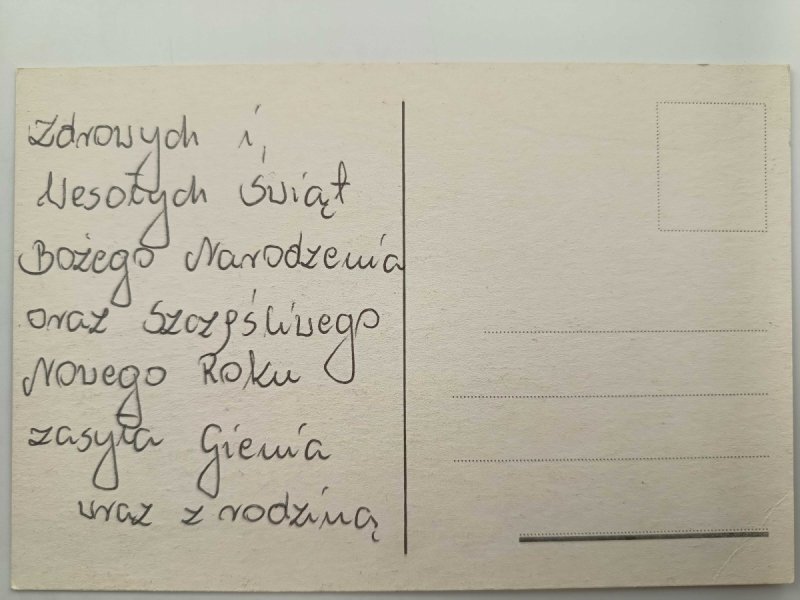 Zdrowych i
Wesołych Świąt
Bożego Narodzenia
oraz Szczęśliwego
Nowego Roku
zasyła Gienia
wraz z rodziną